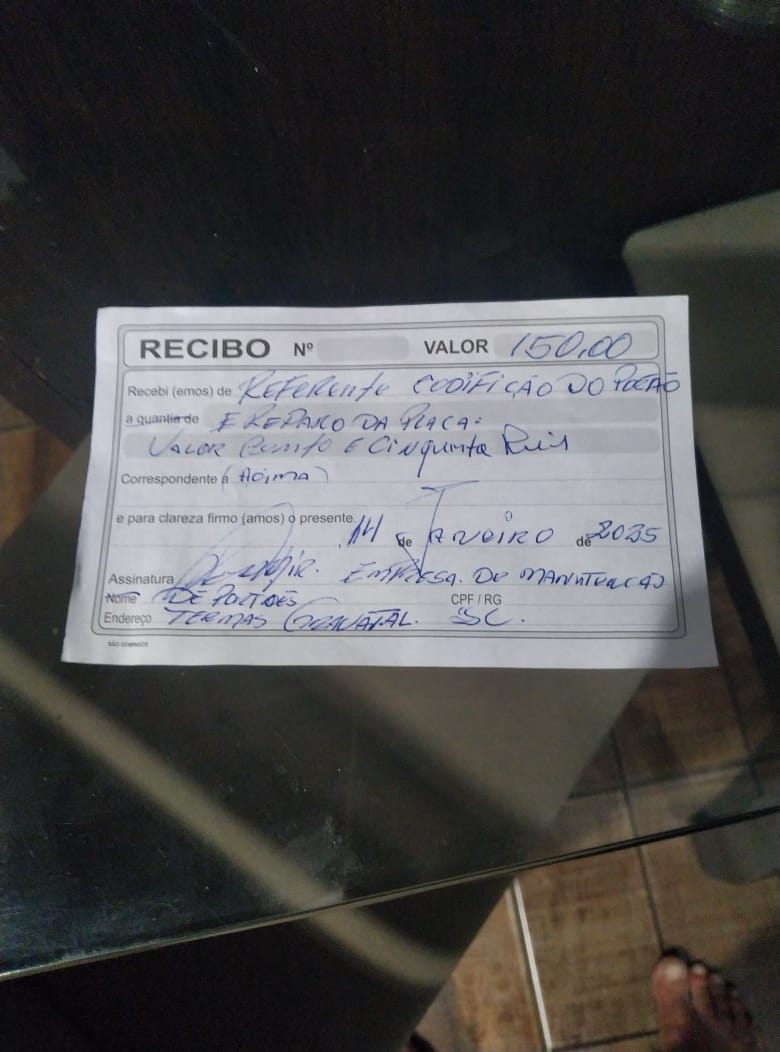 RECIBO Nº VALOR 150,00
Recebi (emos) de REFERENTE CODIFIÇÃO DO PORTÃO
a quantia de E REPARO DA PLACA:
VALOR Cento E Cinquenta Reis
Correspondente á (Acima)
e para clareza firmo (amos) o presente.
14 de JANEIRO de 2025
Assinatura EMPRESA. DE MANUTENCÃO
Nome DE PORTÕES CPF / RG
Endereço TERMAS GRAVATAL. SC.
SÃO DOMINGOS